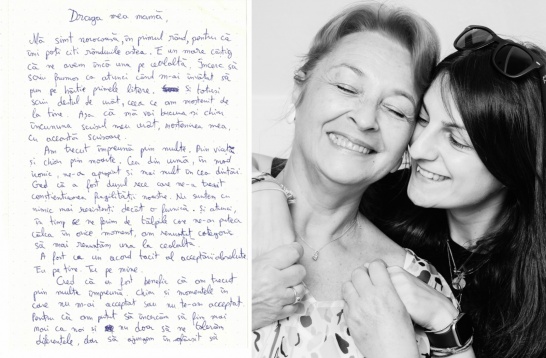 Draga mea mamă,
Mă simt norocoasă, în primul rând, pentru că
îmi poți citi rândurile astea. E un mare câștig
că ne avem încă una pe cealaltă. Încerc să
scriu frumos ca atunci când m-ai învățat să
pun pe hârtie primele litere. Și totuși
scriu destul de urât, ceea ce am moștenit de
la tine. Așa că mă voi bucura și chiar
încununa scrisul meu urât, moștenirea mea,
cu această scrisoare.
Am trecut împreună prin multe. Prin viață
și chiar prin moarte. Cea din urmă, în mod
ironic, ne-a apropiat și mai mult în cea dintâi.
Cred că a fost dușul rece care ne-a trezit
conștientizarea fragilității noastre. Nu suntem cu
nimic mai rezistenți decât o furnică. Și atunci,
în timp ce ne ferim de tălpile care ne-ar putea
călca în orice moment, am renunțat categoric
să mai renunțăm una la cealaltă.
A fost ca un acord tacit al acceptării absolute.
Eu pe tine. Tu pe mine.
Cred că a fost benefic că am trecut
prin multe împreună. Chiar și momentele în
care nu m-ai acceptat sau nu te-am acceptat.
Pentru că am putut să încercăm să fim mai
mari ca noi și nu doar să ne tolerăm
diferențele, dar să ajungem în sfârșit să